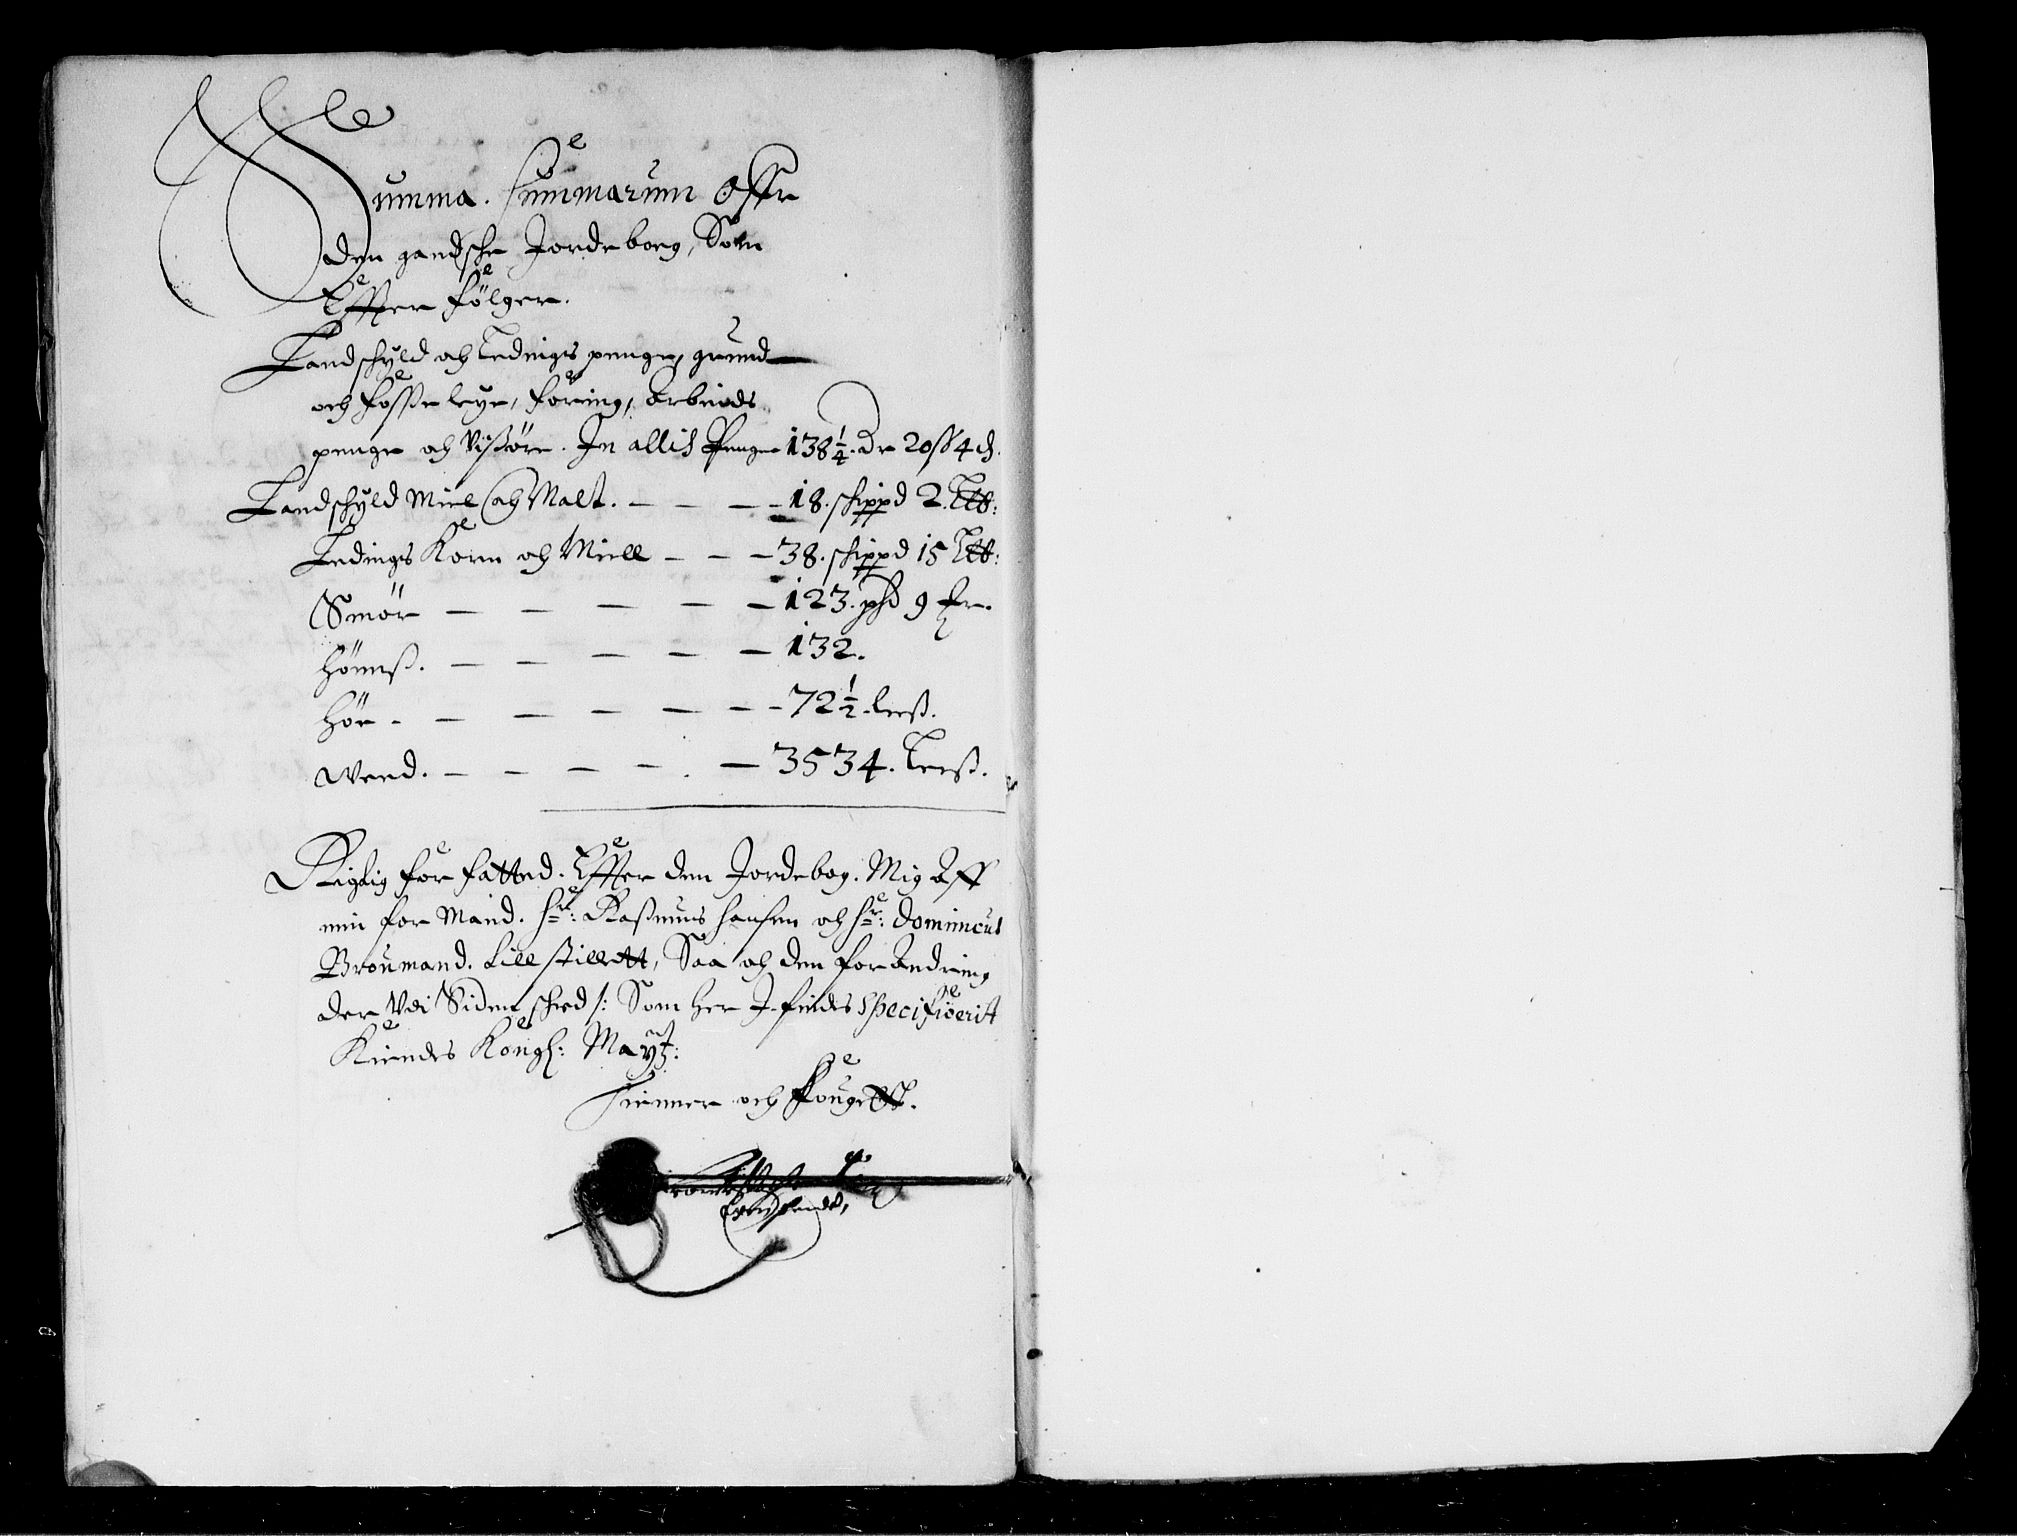 Summa. Summarum Offr
den gandsche Jordeboeg, Som
Effter følger.
Landschyld och Ledings penge, grund
och fosse leye, føring, Arbeids
penge och Visøre. In allis Penge 138¼. dr 20 ß 4 ₰.
Landschyld Miel och Malt. — — — 18. schippd 2. L℔:
Ledings Korn och Miell — — — 38. schippd 15 L℔:
Smør — — — — — 123. pd 9 Mr.
Hønnß. — — — — — 132.
Hør - — — — — — 72½. leß.
Weed. — — — — . — 3534. Leeß.
Rigtig for fatted. Effter den Jordebog. Mig Aff
min for Mand. Hr: Raßmus Hansen och Hr: Dominicus
Broumand. till stillett, Saa och den forandring
der Vdi Siden scheed /: Som her J findes Specificerit
Kiendes Kongl: Maytz:
Thienner och Fougett.